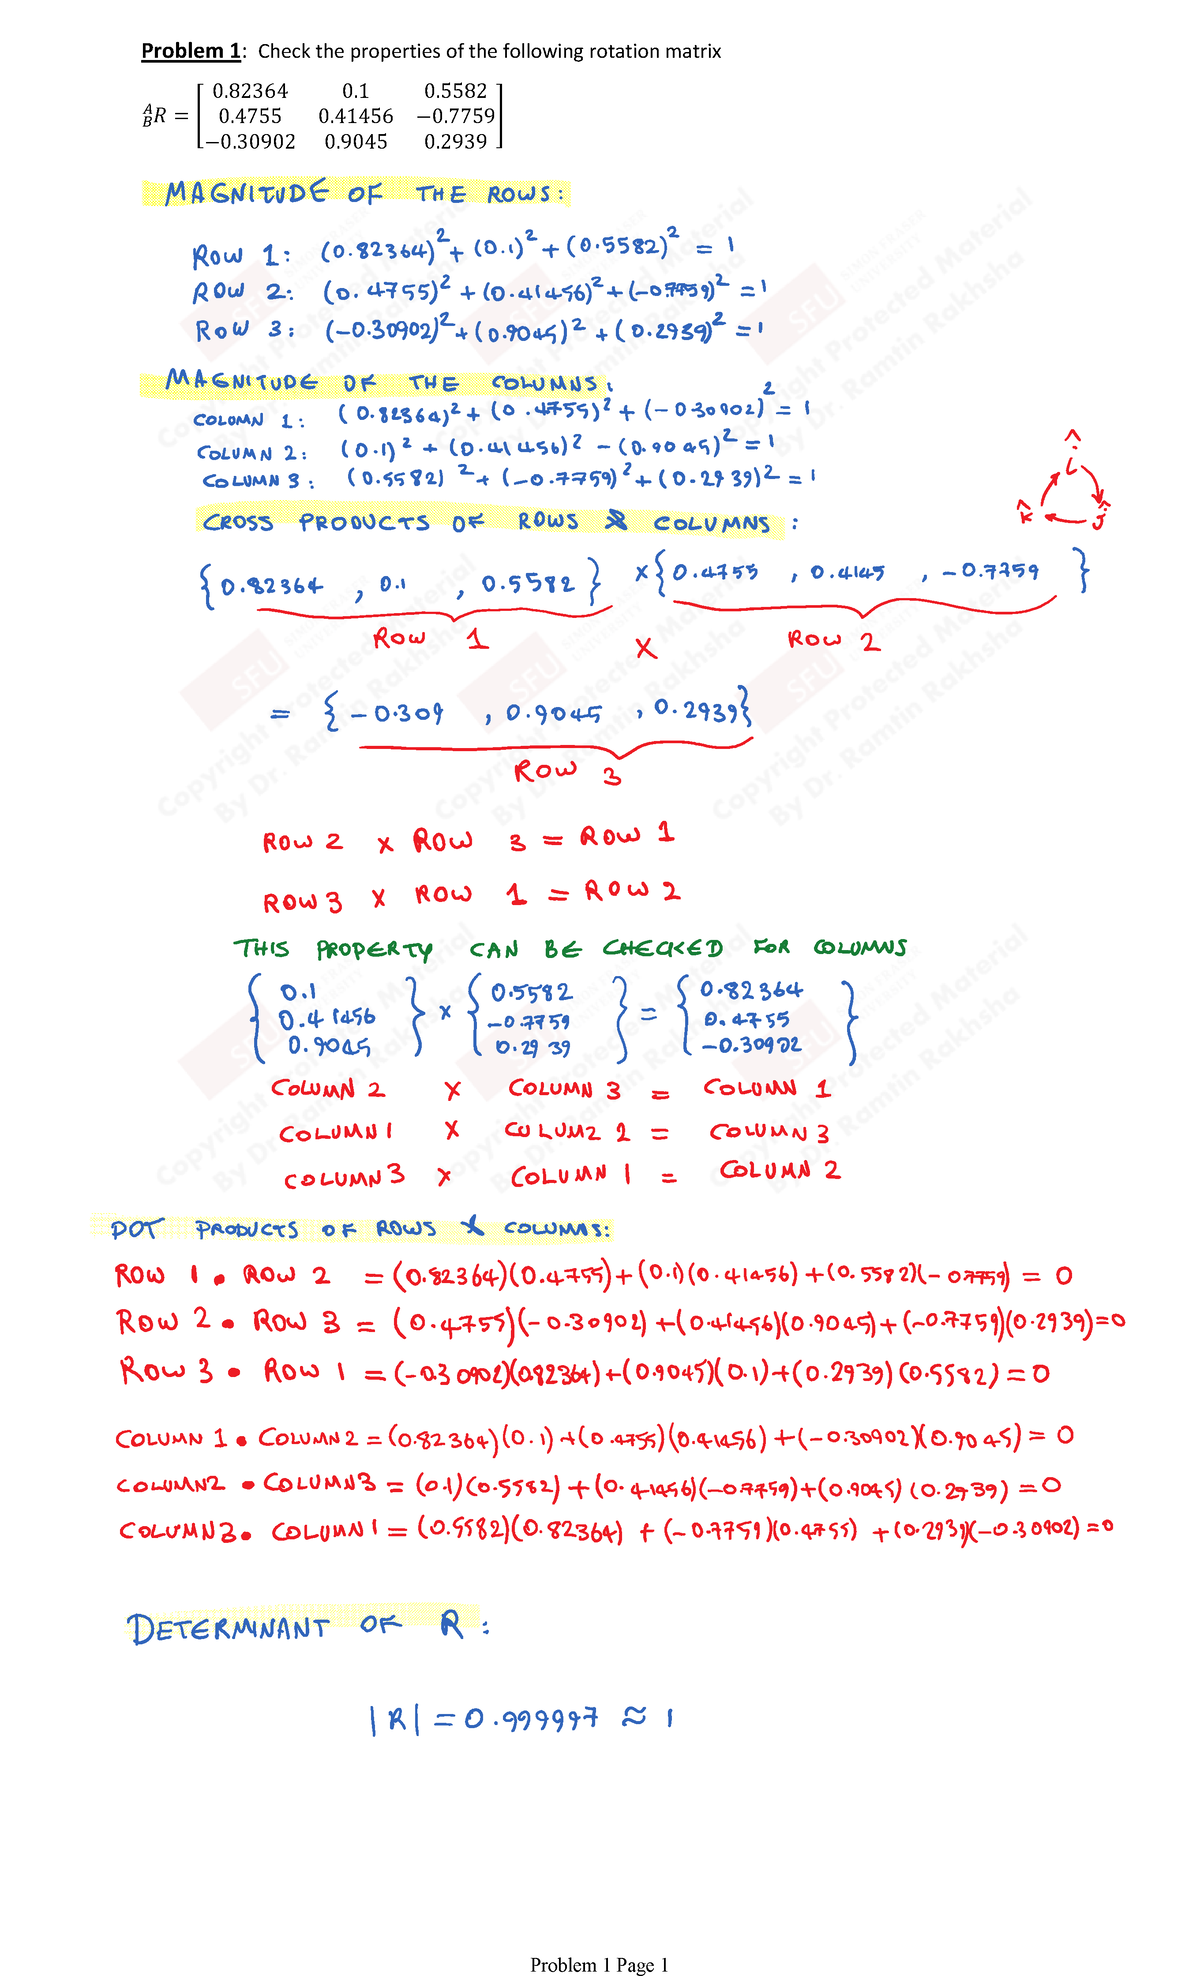 Problem 1: Check the properties of the following rotation matrix
A B R = [ 0.82364 0.1 0.5582
0.4755 0.41456 −0.7759
−0.30902 0.9045 0.2939 ]
MAGNITUDE OF THE ROWS:
ROW 1: (0.82364)² + (0.1)² + (0.5582)² = 1
ROW 2: (0.4755)² + (0.41456)² + (-0.7759)² = 1
ROW 3: (-0.30902)² + (0.9045)² + (0.2939)² = 1
MAGNITUDE OF THE COLUMNS:
COLOMN 1: (0.82364)² + (0.4755)² + (-0.30902)² = 1
COLUMN 2: (0.1)² + (0.41456)² - (0.9045)² = 1
COLUMN 3: (0.5582)² + (-0.7759)² + (0.2939)² = 1
î
k̂ ĵ
CROSS PRODUCTS OF ROWS & COLUMNS:
{0.82364, 0.1, 0.5582} × {0.4755, 0.4145, -0.7759}
ROW 1 × ROW 2
= {-0.309, 0.9045, 0.2939}
ROW 3
ROW 2 × ROW 3 = ROW 1
ROW 3 × ROW 1 = ROW 2
THIS PROPERTY CAN BE CHECKED FOR COLUMNS
{ 0.1 } × { 0.5582 } = { 0.82364 }
0.41456 -0.7759 0.4755
0.9045 0.2939 -0.30902
COLUMN 2 × COLUMN 3 = COLUMN 1
COLUMN 1 × COLUM2 2 = COLUMN 3
COLUMN 3 × COLUMN 1 = COLUMN 2
DOT PRODUCTS OF ROWS & COLUMNS:
ROW 1 • ROW 2 = (0.82364)(0.4755) + (0.1)(0.41456) + (0.5582)(-0.7759) = 0
ROW 2 • ROW 3 = (0.4755)(-0.30902) + (0.41456)(0.9045) + (-0.7759)(0.2939) = 0
ROW 3 • ROW 1 = (-0.30902)(0.82364) + (0.9045)(0.1) + (0.2939)(0.5582) = 0
COLUMN 1 • COLUMN 2 = (0.82364)(0.1) + (0.4755)(0.41456) + (-0.30902)(0.9045) = 0
COLUMN2 • COLUMN3 = (0.1)(0.5582) + (0.41456)(-0.7759) + (0.9045)(0.2939) = 0
COLUMN3 • COLUMN 1 = (0.5582)(0.82364) + (-0.7759)(0.4755) + (0.2939)(-0.30902) = 0
DETERMINANT OF R:
|R| = 0.999997 ≈ 1
SFU
Copyright Protected Material
By Dr. Ramtin Rakhsha
Problem 1 Page 1